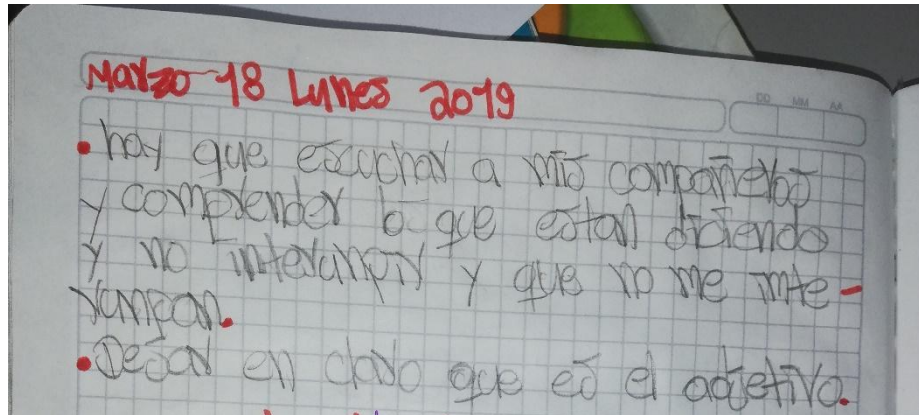 Marzo 18 Lunes 2019
DD MM AA
• hay que escuchar a mis compañeros
y comprender lo que estan diciendo
y no interrumpir y que no me inte-
rumpan.
• Dejar en claro que es el adjetivo.